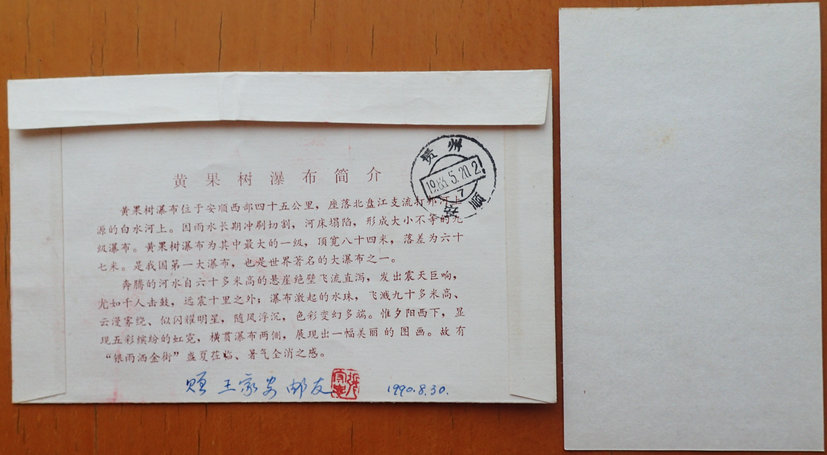 黄果树瀑布简介
贵州
1986.5.20.2
7
安顺
黄果树瀑布位于安顺西部四十五公里，座落北盘江支流打邦河上
源的白水河上。因雨水长期冲刷切割，河床塌陷，形成大小不等的九
级瀑布。黄果树瀑布为其中最大的一级，顶宽八十四米，落差为六十
七米。是我国第一大瀑布，也是世界著名的大瀑布之一。
奔腾的河水自六十多米高的悬崖绝壁飞流直泻，发出震天巨响，
尤如千人击鼓，远震十里之外；瀑布激起的水珠，飞溅九十多米高、
云漫雾绕、似闪耀明星，随风浮沉，色彩变幻多端。惟夕阳西下，显
现五彩缤纷的虹霓，横贯瀑布两侧，展现出一幅美丽的图画。故有
“银雨洒金街”盛夏莅临、暑气全消之感。
赠王家安邮友
1990.8.30.